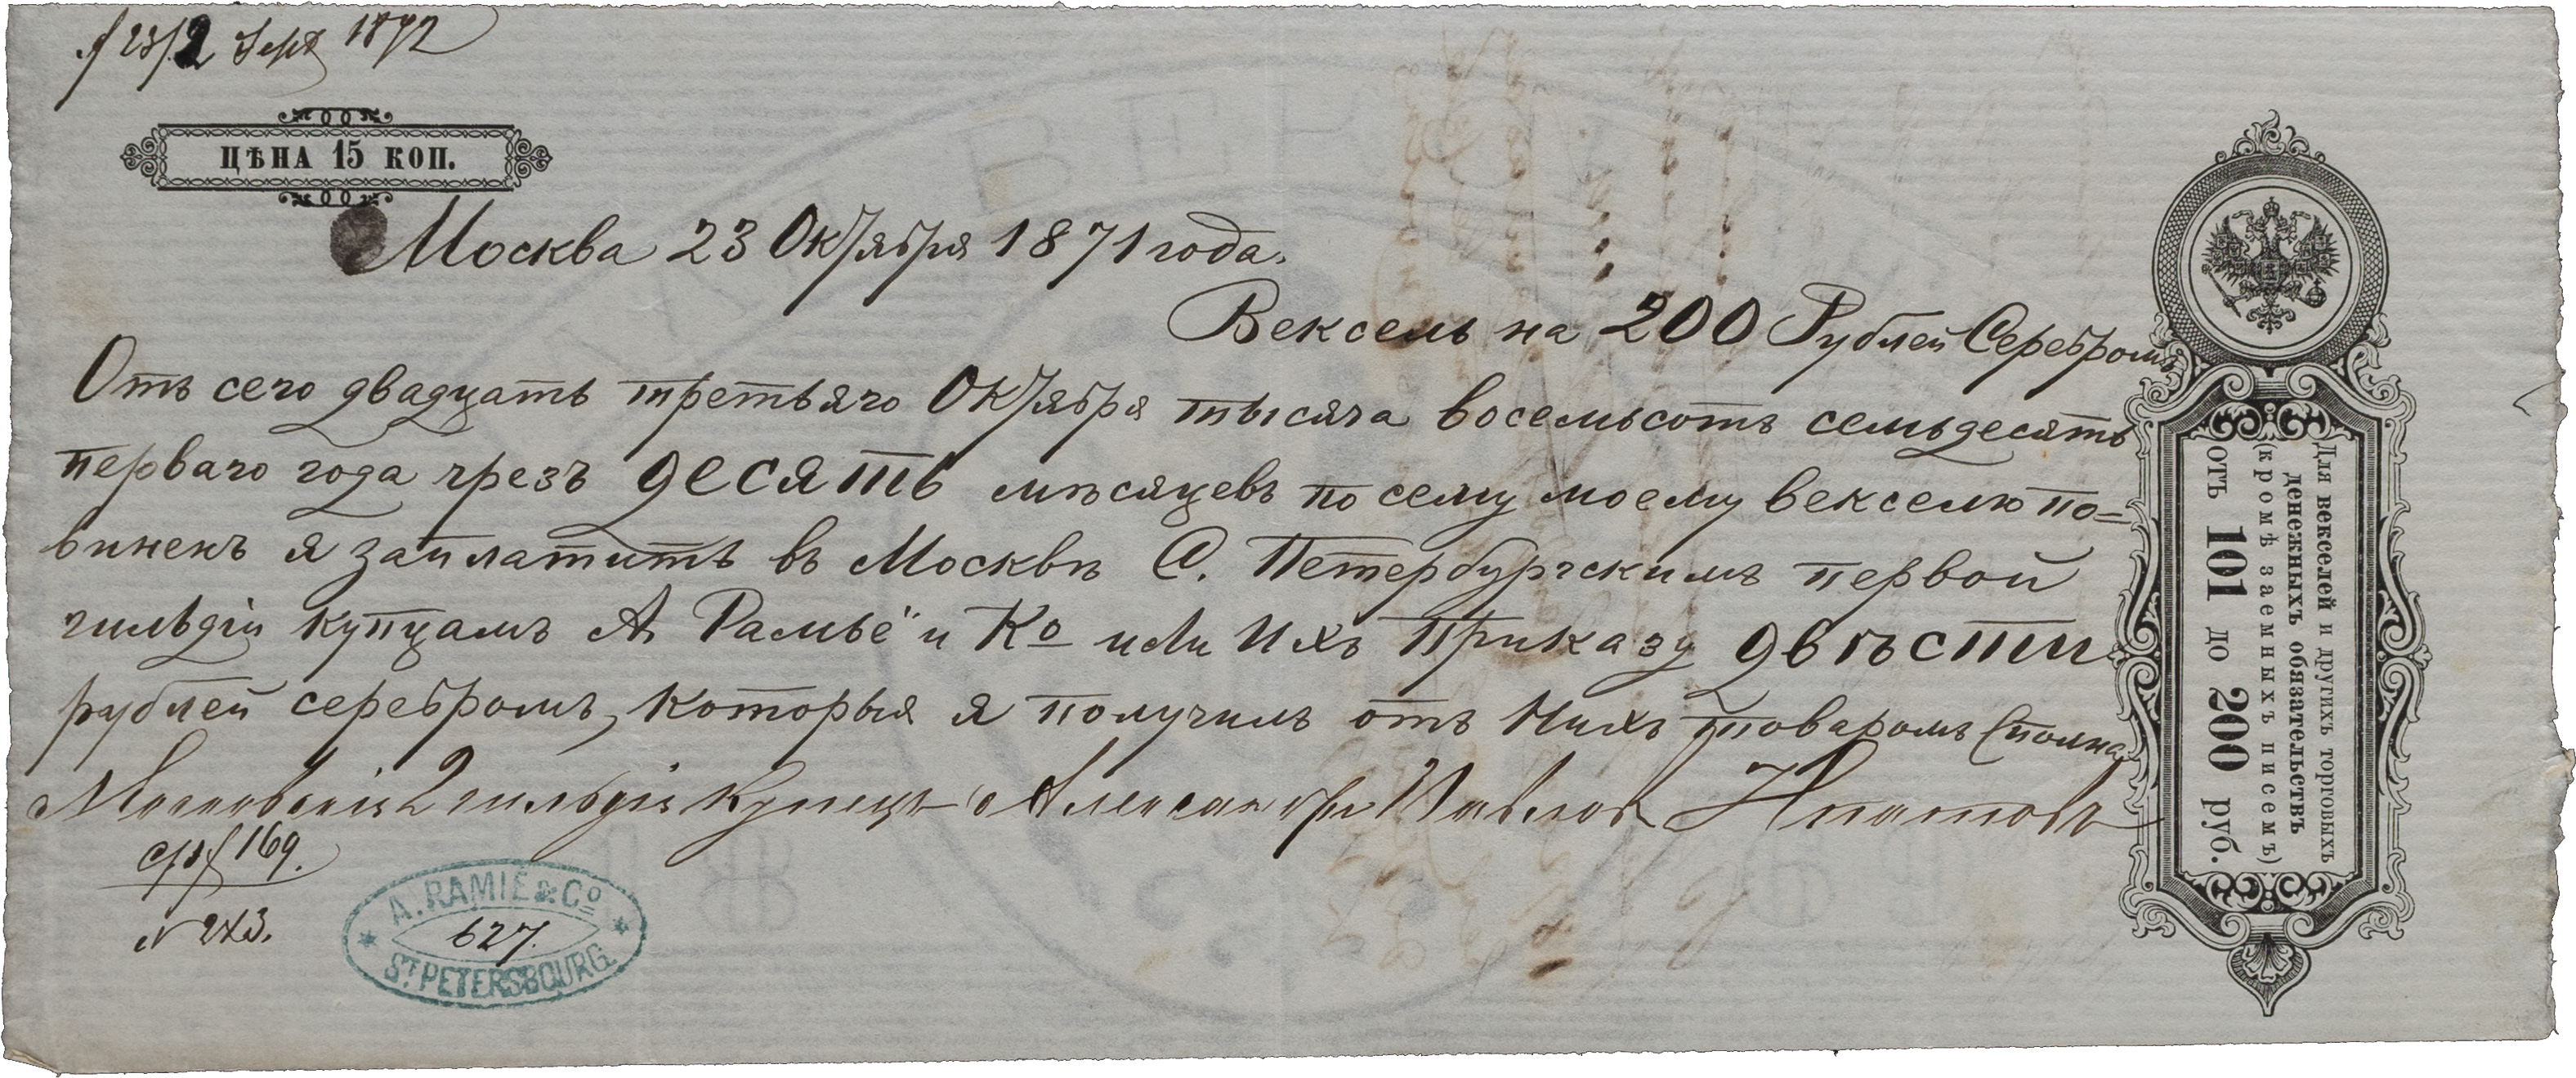 23/2 Sept 1872
ЦѢНА 15 КОП.
Москва 23 Октября 1871 года.
Вексель на 200 Рублей Серебромъ
Отъ сего двадцать третьяго Октября тысяча восемьсотъ семьдесятъ
перваго года чрезъ десять мѣсяцевъ по сему моему векселю по=
виненъ я заплатить въ Москвѣ С. Петербургскимъ первой
гильдіи купцамъ А. Рамье и Ко или Ихъ приказу двѣсти
рублей серебромъ, которыя я получилъ отъ Нихъ товаромъ сполна
Московскій 2 гильдіи Купецъ Александръ Павловъ Ипатовъ
169.
N 243.
A. RAMIÉ & Co
627.
ST. PETERSBOURG.
Для векселей и другихъ торговыхъ
денежныхъ обязательствъ
(кромѣ заемныхъ писемъ)
отъ 101 до 200 руб.